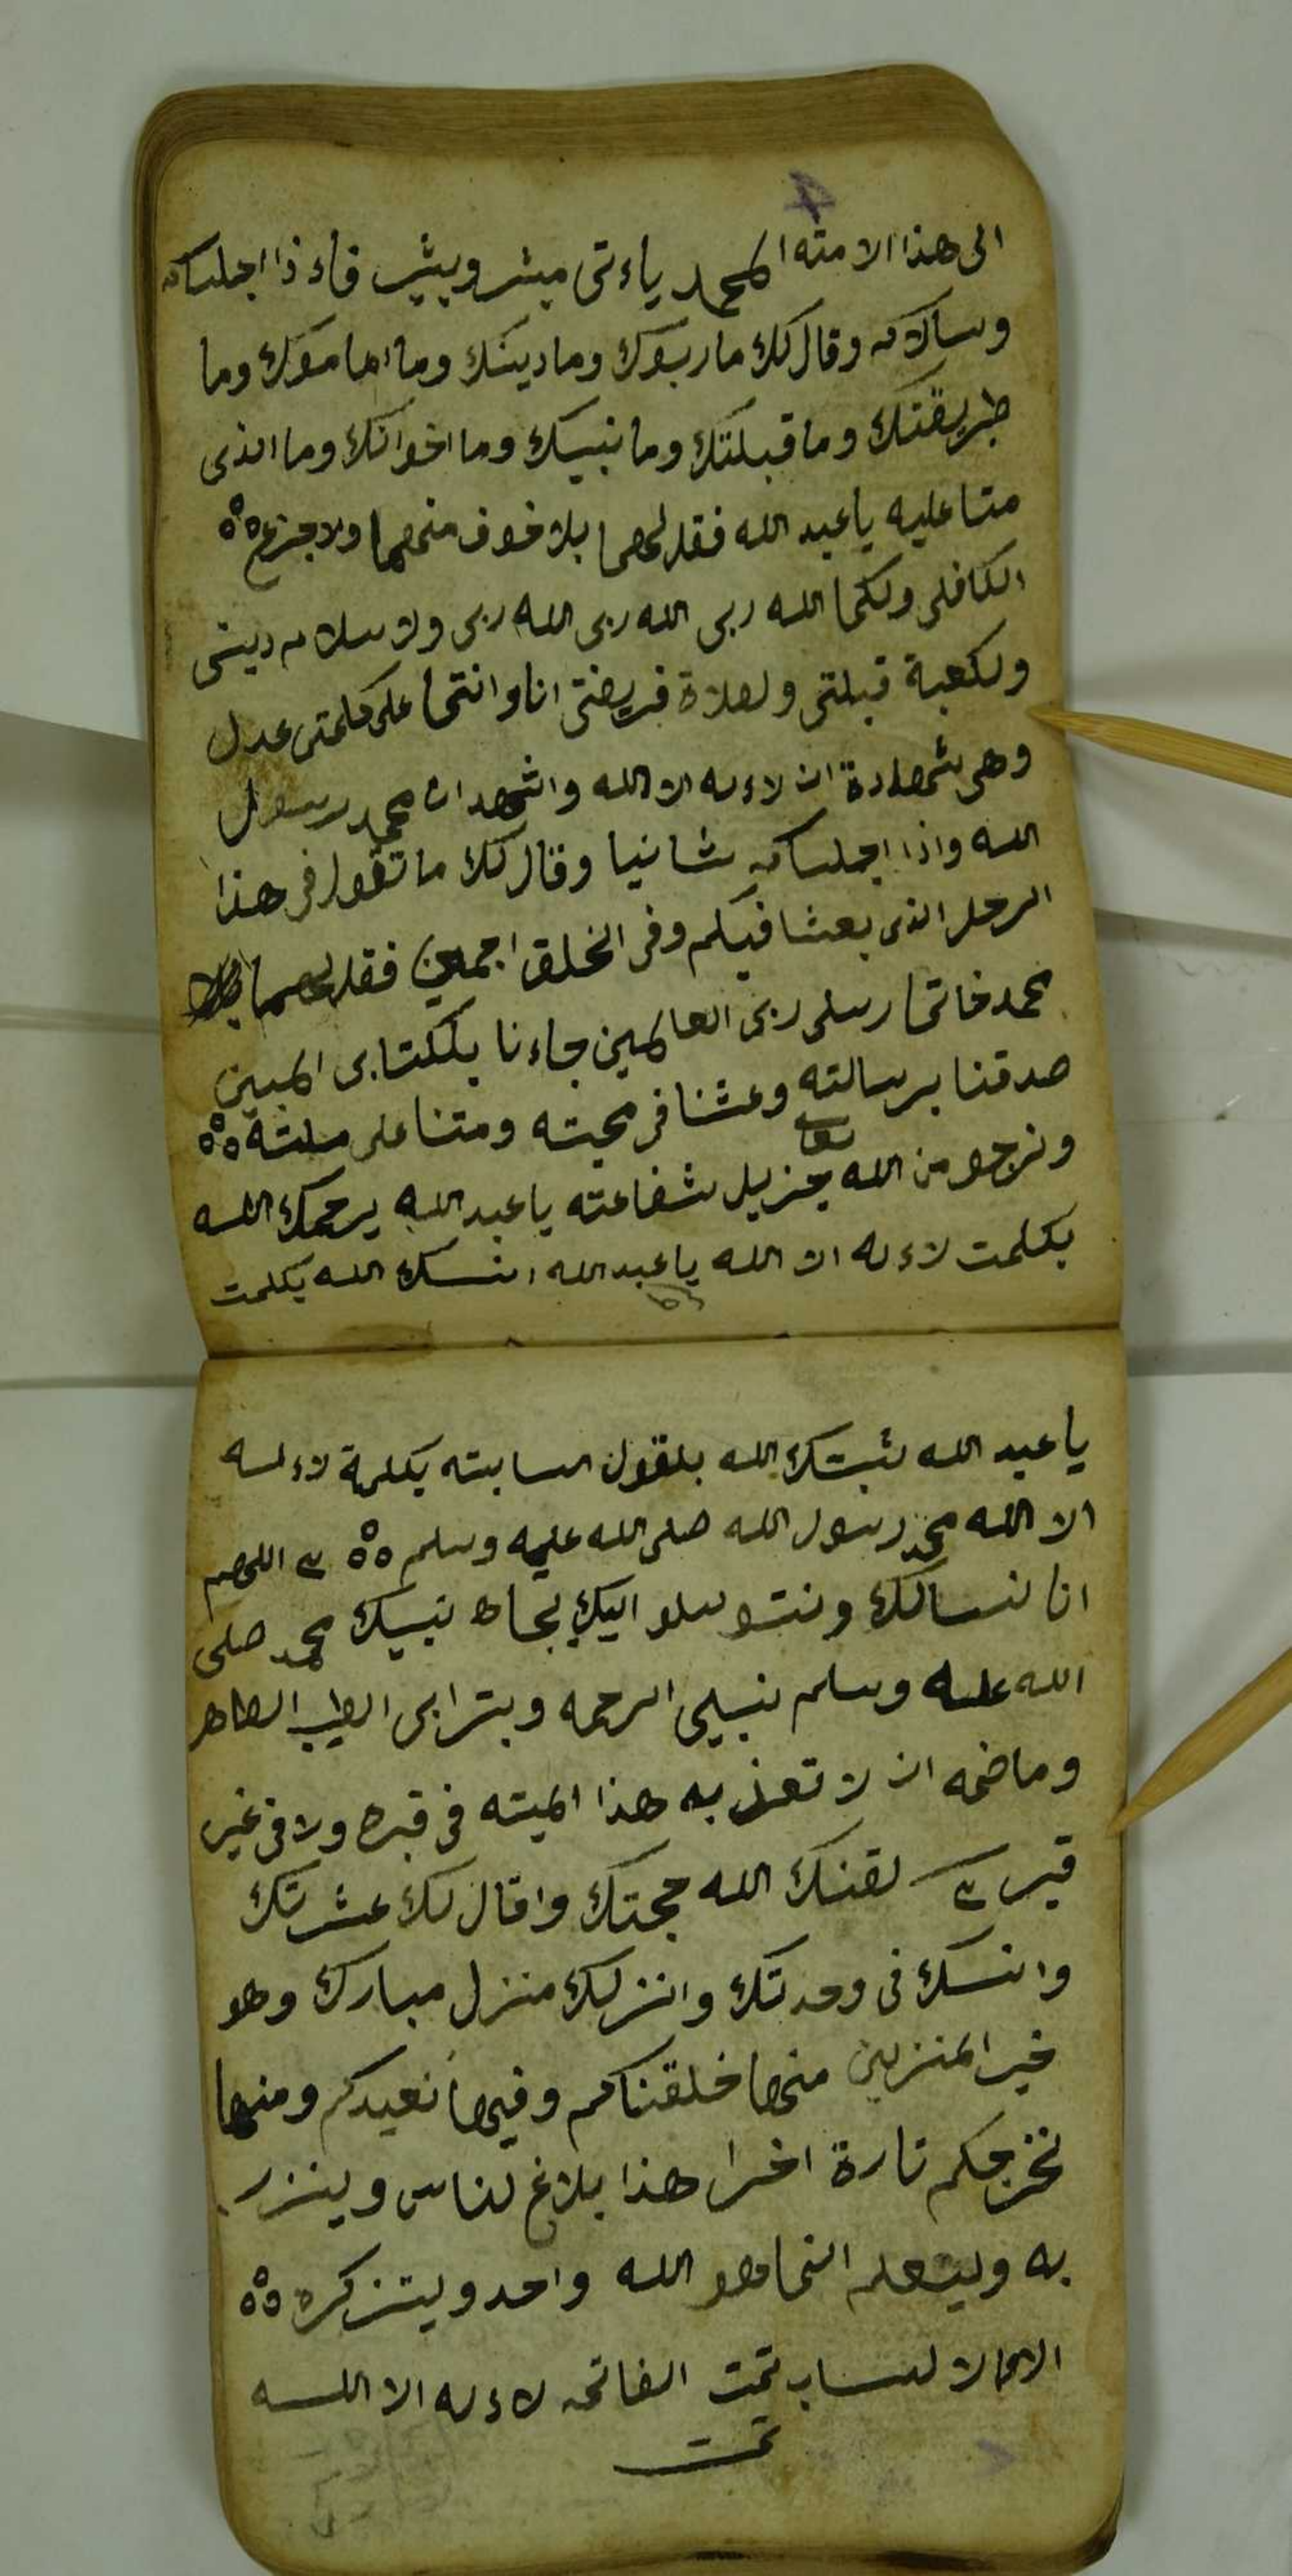 4
الى هذا الامته المحمد ياءتى مبشر وبشير فاءذا اجلساك
وسالاك وقال لك ما ربوك وما دينك وما امامؤك وما
طريقتك وما قبلتك وما نبيك وما اخوانك وما الذى
متا عليه يا عبد الله فقل لهما بلا خوف منهما ولا جزع ٥٥
ولكما الله ربى الله ربى الله ربى ولاسلام دينى
ولكعبة قبلتى ولصلاة فريضتى انا وانتما على كلمتى عدل
وهى شهادة ان لاءله الا الله واشهد ان محمد رسول
الله واذا اجلساك ثانيا وقال لك ما تقول فى هذا
الرجل الذى بعثا فيكم وفى الخلق اجمعين فقل لهما
محمد خاتما رسلى ربى العالمين جاءنا بلكتابى المبين
صدقنا برسالته وعشنا فى محبته ومتنا على ملته ٥٥
ونرجو من الله تعالى بجزيل شفاعته يا عبد الله يرحمك الله
بكلمت لاءله الا الله يا عبد الله انسك الله بكلمت
يا عبد الله ثبتك الله بلقول السابته بكلمة لاءله
الا الله محمد رسول الله صلى الله عليه وسلم ٥٥ ٣ اللهم
انا نسالك ونتوسلو اليك بجاه نبيك محمد صلى
الله عليه وسلم نبيى الرحمه وبترابى الطيب الطاهر
وماضمه ان لا تعذبه هذا الميته فى قبره ولا فى غير
قبر ٣ لقنك الله حجتك واقال لك عشرتك
وانسك فى وحدتك وانزلك منزل مبارك وهو
خير المنزلين منها خلقناكم وفيها نعيدكم ومنها
نخرجكم تارة اخرا هذا بلاغ لناس وينزر
به وليعلم انما هو الله واحد وليتزكره ٥٥
تمت الفاتحه لاءله الا الله
تمت